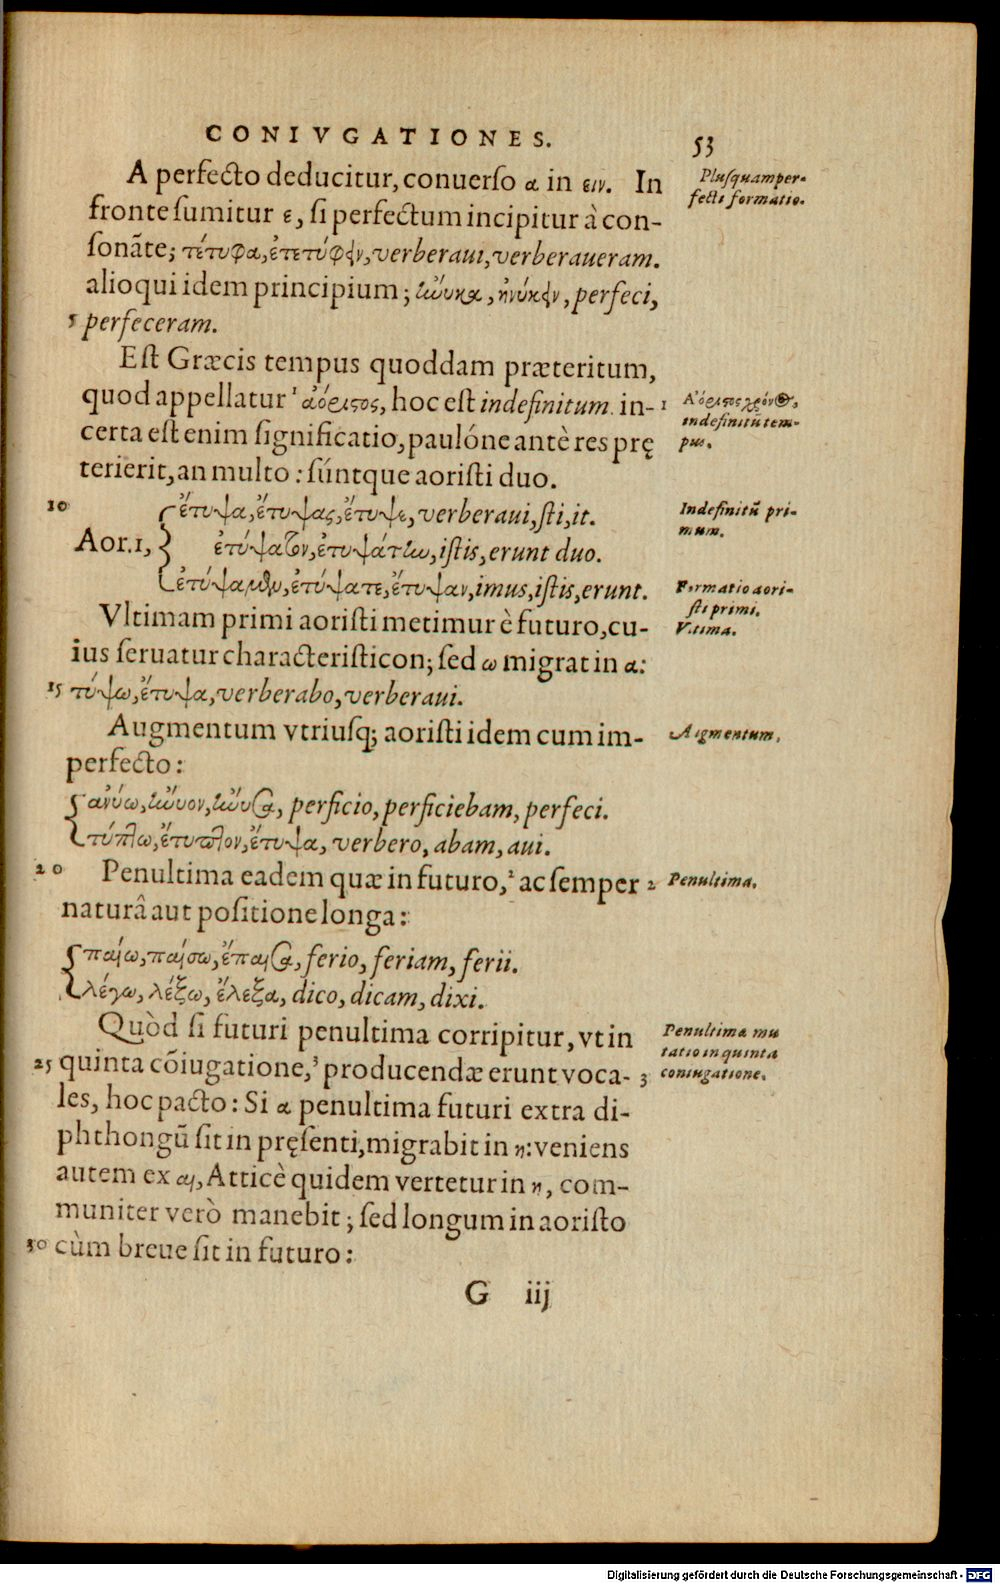 CONIVGATIONES. 53
A perfecto deducitur, conuerso α in ειν. In
fronte sumitur ε, si perfectum incipitur à con-
sonāte; τέτυφα, ἐτετύφειν, verberaui, verberaueram.
alioqui idem principium; ἤνυκα, ἠνύκειν, perfeci,
5 perfeceram.
Plusquamper-
fecti formatio.
Est Græcis tempus quoddam præteritum,
quod appellatur ¹ ἀόριστος, hoc est indefinitum. in-
certa est enim significatio, paulóne antè res prę
terierit, an multo: súntque aoristi duo.
1 Ἀόριστος χρόνος,
indefinitū tem-
pus.
10 ἔτυψα, ἔτυψας, ἔτυψε, verberaui, sti, it.
Aor.1, ἐτύψατον, ἐτυψάτην, istis, erunt duo.
ἐτύψαμεν, ἐτύψατε, ἔτυψαν, imus, istis, erunt.
Indefinitū pri-
mum.
Vltimam primi aoristi metimur è futuro, cu-
ius seruatur characteristicon; sed ω migrat in α:
15 τύψω, ἔτυψα, verberabo, verberaui.
Formatio aori-
sti primi.
Vltima.
Augmentum vtriusq; aoristi idem cum im-
perfecto:
Augmentum.
ἀνύω, ἤνυον, ἤνυσα, perficio, perficiebam, perfeci.
τύπτω, ἔτυπτον, ἔτυψα, verbero, abam, aui.
20 Penultima eadem quæ in futuro, ² ac semper
naturâ aut positione longa:
2 Penultima.
παίω, παίσω, ἔπαισα, ferio, feriam, ferii.
λέγω, λέξω, ἔλεξα, dico, dicam, dixi.
Quòd si futuri penultima corripitur, vt in
25 quinta cōiugatione, ³ producendæ erunt voca-
les, hoc pacto: Si α penultima futuri extra di-
phthongū sit in pręsenti, migrabit in η: veniens
autem ex αι, Atticè quidem vertetur in η, com-
muniter verò manebit; sed longum in aoristo
30 cùm breue sit in futuro:
Penultima mu
tatio in quinta
3 coniugatione.
G iij
Digitalisierung gefördert durch die Deutsche Forschungsgemeinschaft - DFG